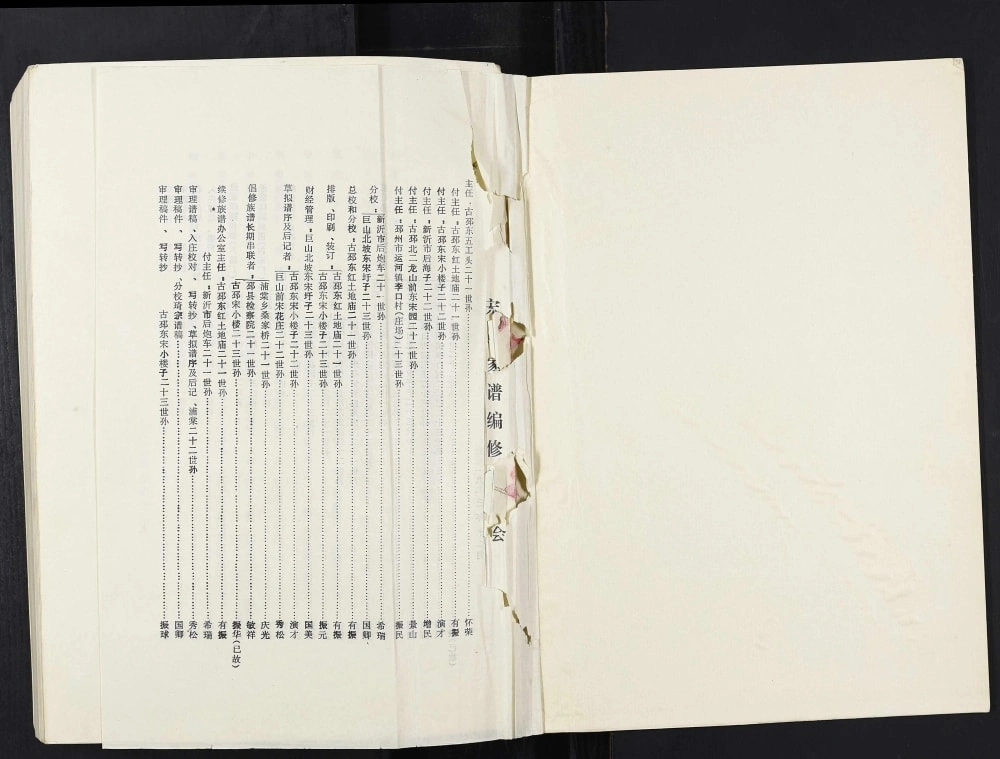 宋家谱编修 会
主任：古邳东五工头二十一世孙……怀荣
付主任：古邳东红土地庙二十一世孙……有振
付主任：古邳东宋小楼子二十二世孙……演才
付主任：新沂市后海子二十二世孙……增民
付主任：古邳北二龙山前东宋园二十二世孙……景山
付主任：邳州市运河镇李口村（庄场）二十三世孙……振民
分校：新沂市后炮车二十一世孙……希瑞
巨山北坡东宋圩子二十三世孙……国卿
总校和分校：古邳东红土地庙二十一世孙……有振
排版、印刷、装订：古邳东红土地庙二十一世孙……有振
古邳东宋小楼子二十三世孙……振元
财经管理：巨山北坡东宋圩子二十三世孙……国美
草拟谱序及后记者：古邳东宋小楼子二十二世孙……演才
巨山前宋花庄二十二世孙……秀松
浦棠乡桑家桥二十一世孙……庆光
倡修族谱长期串联者：邳县检察院二十一世孙……敏祥
古邳宋小楼二十三世孙……振华（已故）
续修族谱办公室主任：古邳东红土地庙二十一世孙……有振
付主任：新沂市后炮车二十一世孙……希瑞
审理谱稿、入庄校对、写转抄、草拟谱序及后记、浦棠二十二世孙……秀松
审理稿件、写转抄、分校琦宗谱稿……国卿
审理稿件、写转抄 古邳东宋小楼子二十三世孙……振球